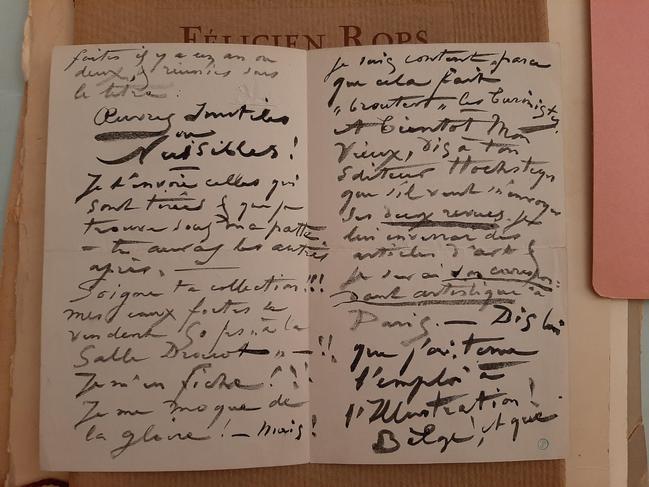 FÉLICIEN ROPS
faites il y a un an ou
deux, & réunies sous
le titre :
Œuvres Inutiles
ou
Nuisibles !
Je t'envoie celles qui
sont tirées & que je
trouve sous ma patte
- tu auras les autres
après. —
Soigne ta collection !!!
mes eaux fortes se
vendent 60 frs à la
Salle Drouot » — !!
Je m'en fiche ! ! !
Je me moque de
la gloire ! — mais !
je suis content parce
que cela fait
„ brouter " les
A Bientot Mon
Vieux, dis à ton
Editeur Hochsteyn
que s'il veut m'envoyer
ses deux revues je
lui enverrai des
articles d'art &
je serai son corres-
dant artistique à
Paris. — Dis lui
que j'ai tenu
l'emploi à
l'Illustration !
Belge, & que